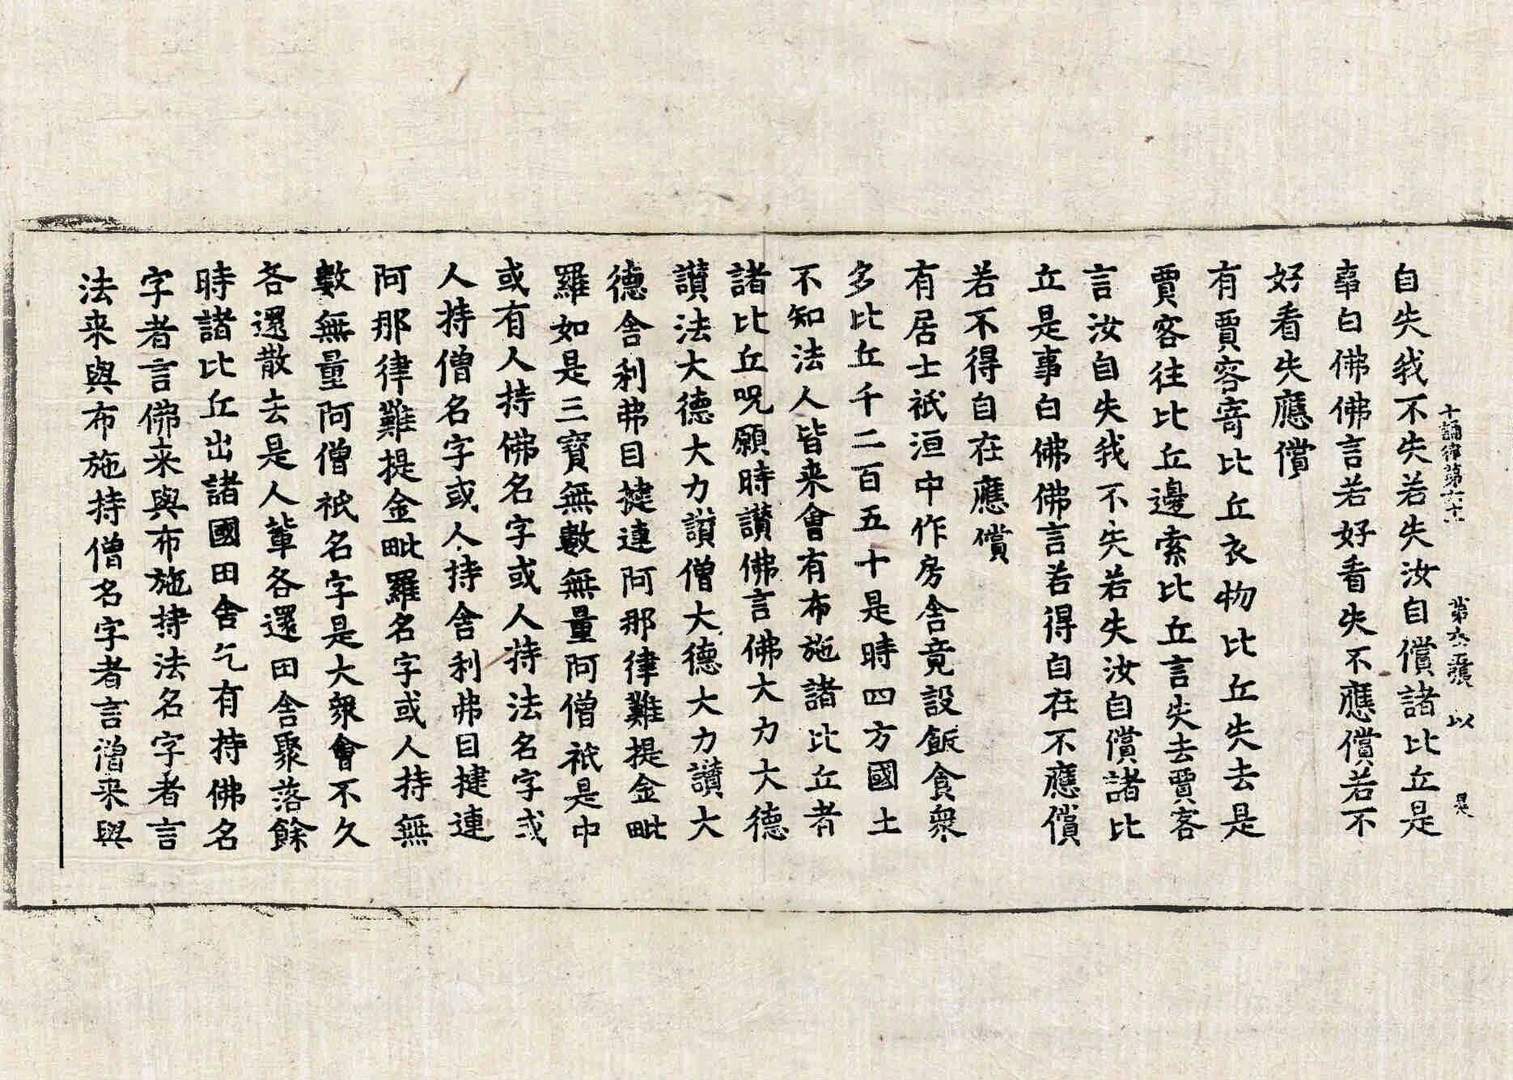 十誦律第六十　第五張　以　是
自失我不失若失汝自償諸比丘是
事白佛佛言若好看失不應償若不
好看失應償
有賈客寄比丘衣物比丘失去是
賈客往比丘邊索比丘言失去賈客
言汝自失我不失若失汝自償諸比
丘是事白佛佛言若得自在不應償
若不得自在應償
有居士祇洹中作房舍竟設飯食衆
多比丘千二百五十是時四方國土
不知法人皆来會有布施諸比丘者
諸比丘呪願時讃佛言佛大力大德
讃法大德大力讃僧大德大力讃大
德舍利弗目揵連阿那律難提金毗
羅如是三寶無數無量阿僧祇是中
或有人持佛名字或人持法名字或
人持僧名字或人持舍利弗目揵連
阿那律難提金毗羅名字或人持無
數無量阿僧祇名字是大衆會不久
各還散去是人輩各還田舍聚落餘
時諸比丘出諸國田舍乞有持佛名
字者言佛来與布施持法名字者言
法来與布施持僧名字者言僧来與